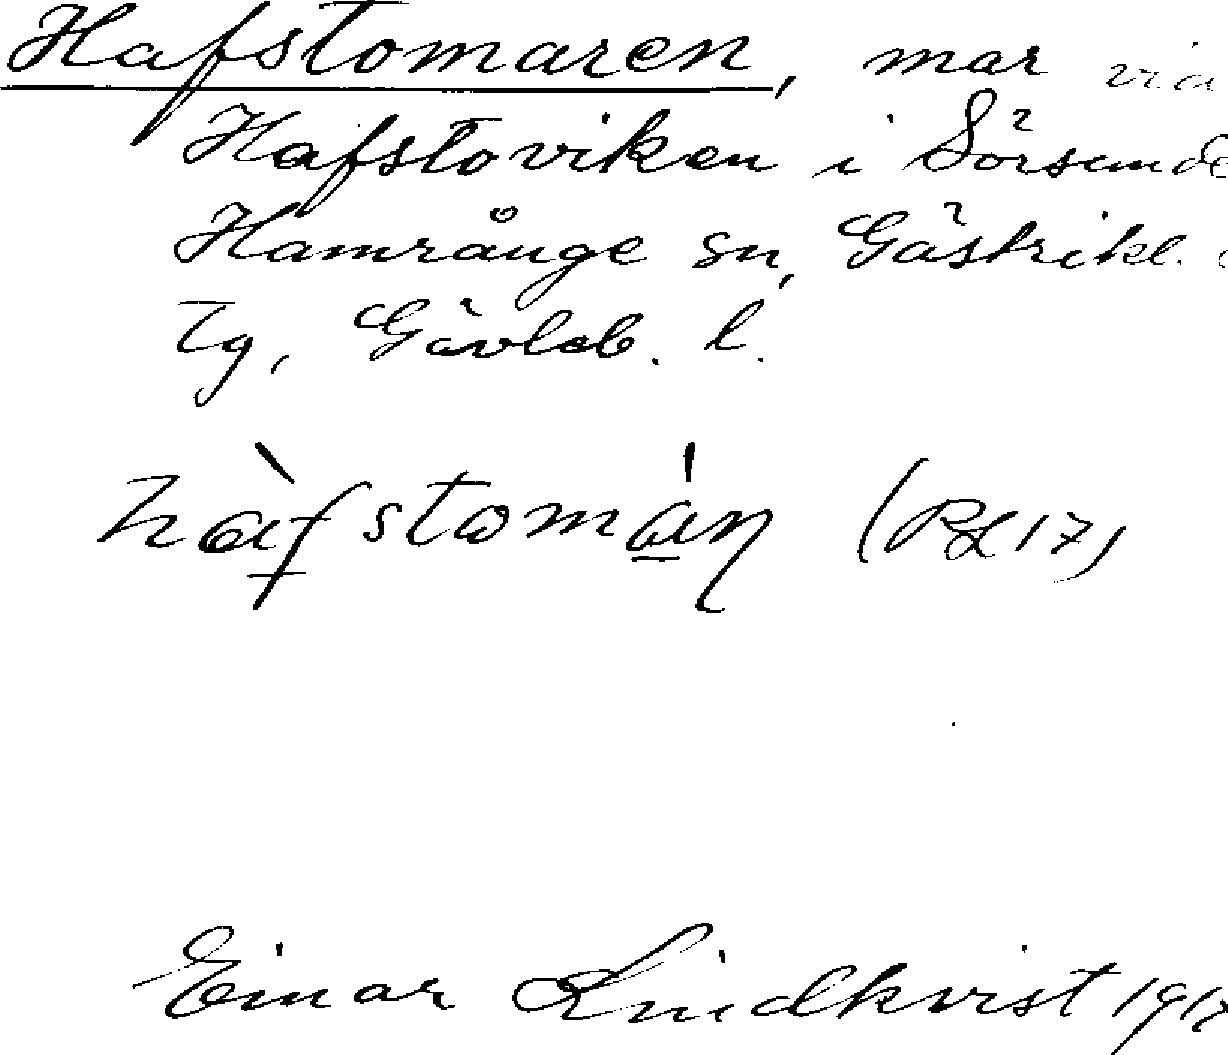 Hafstomaren, mar vid
Hafstoviken i Sörsunde
Hamrånge sn, Gästrikl.
Tg, Gävleb. l.
hàfstomán (RL 17)
Einar Lindkvist 191